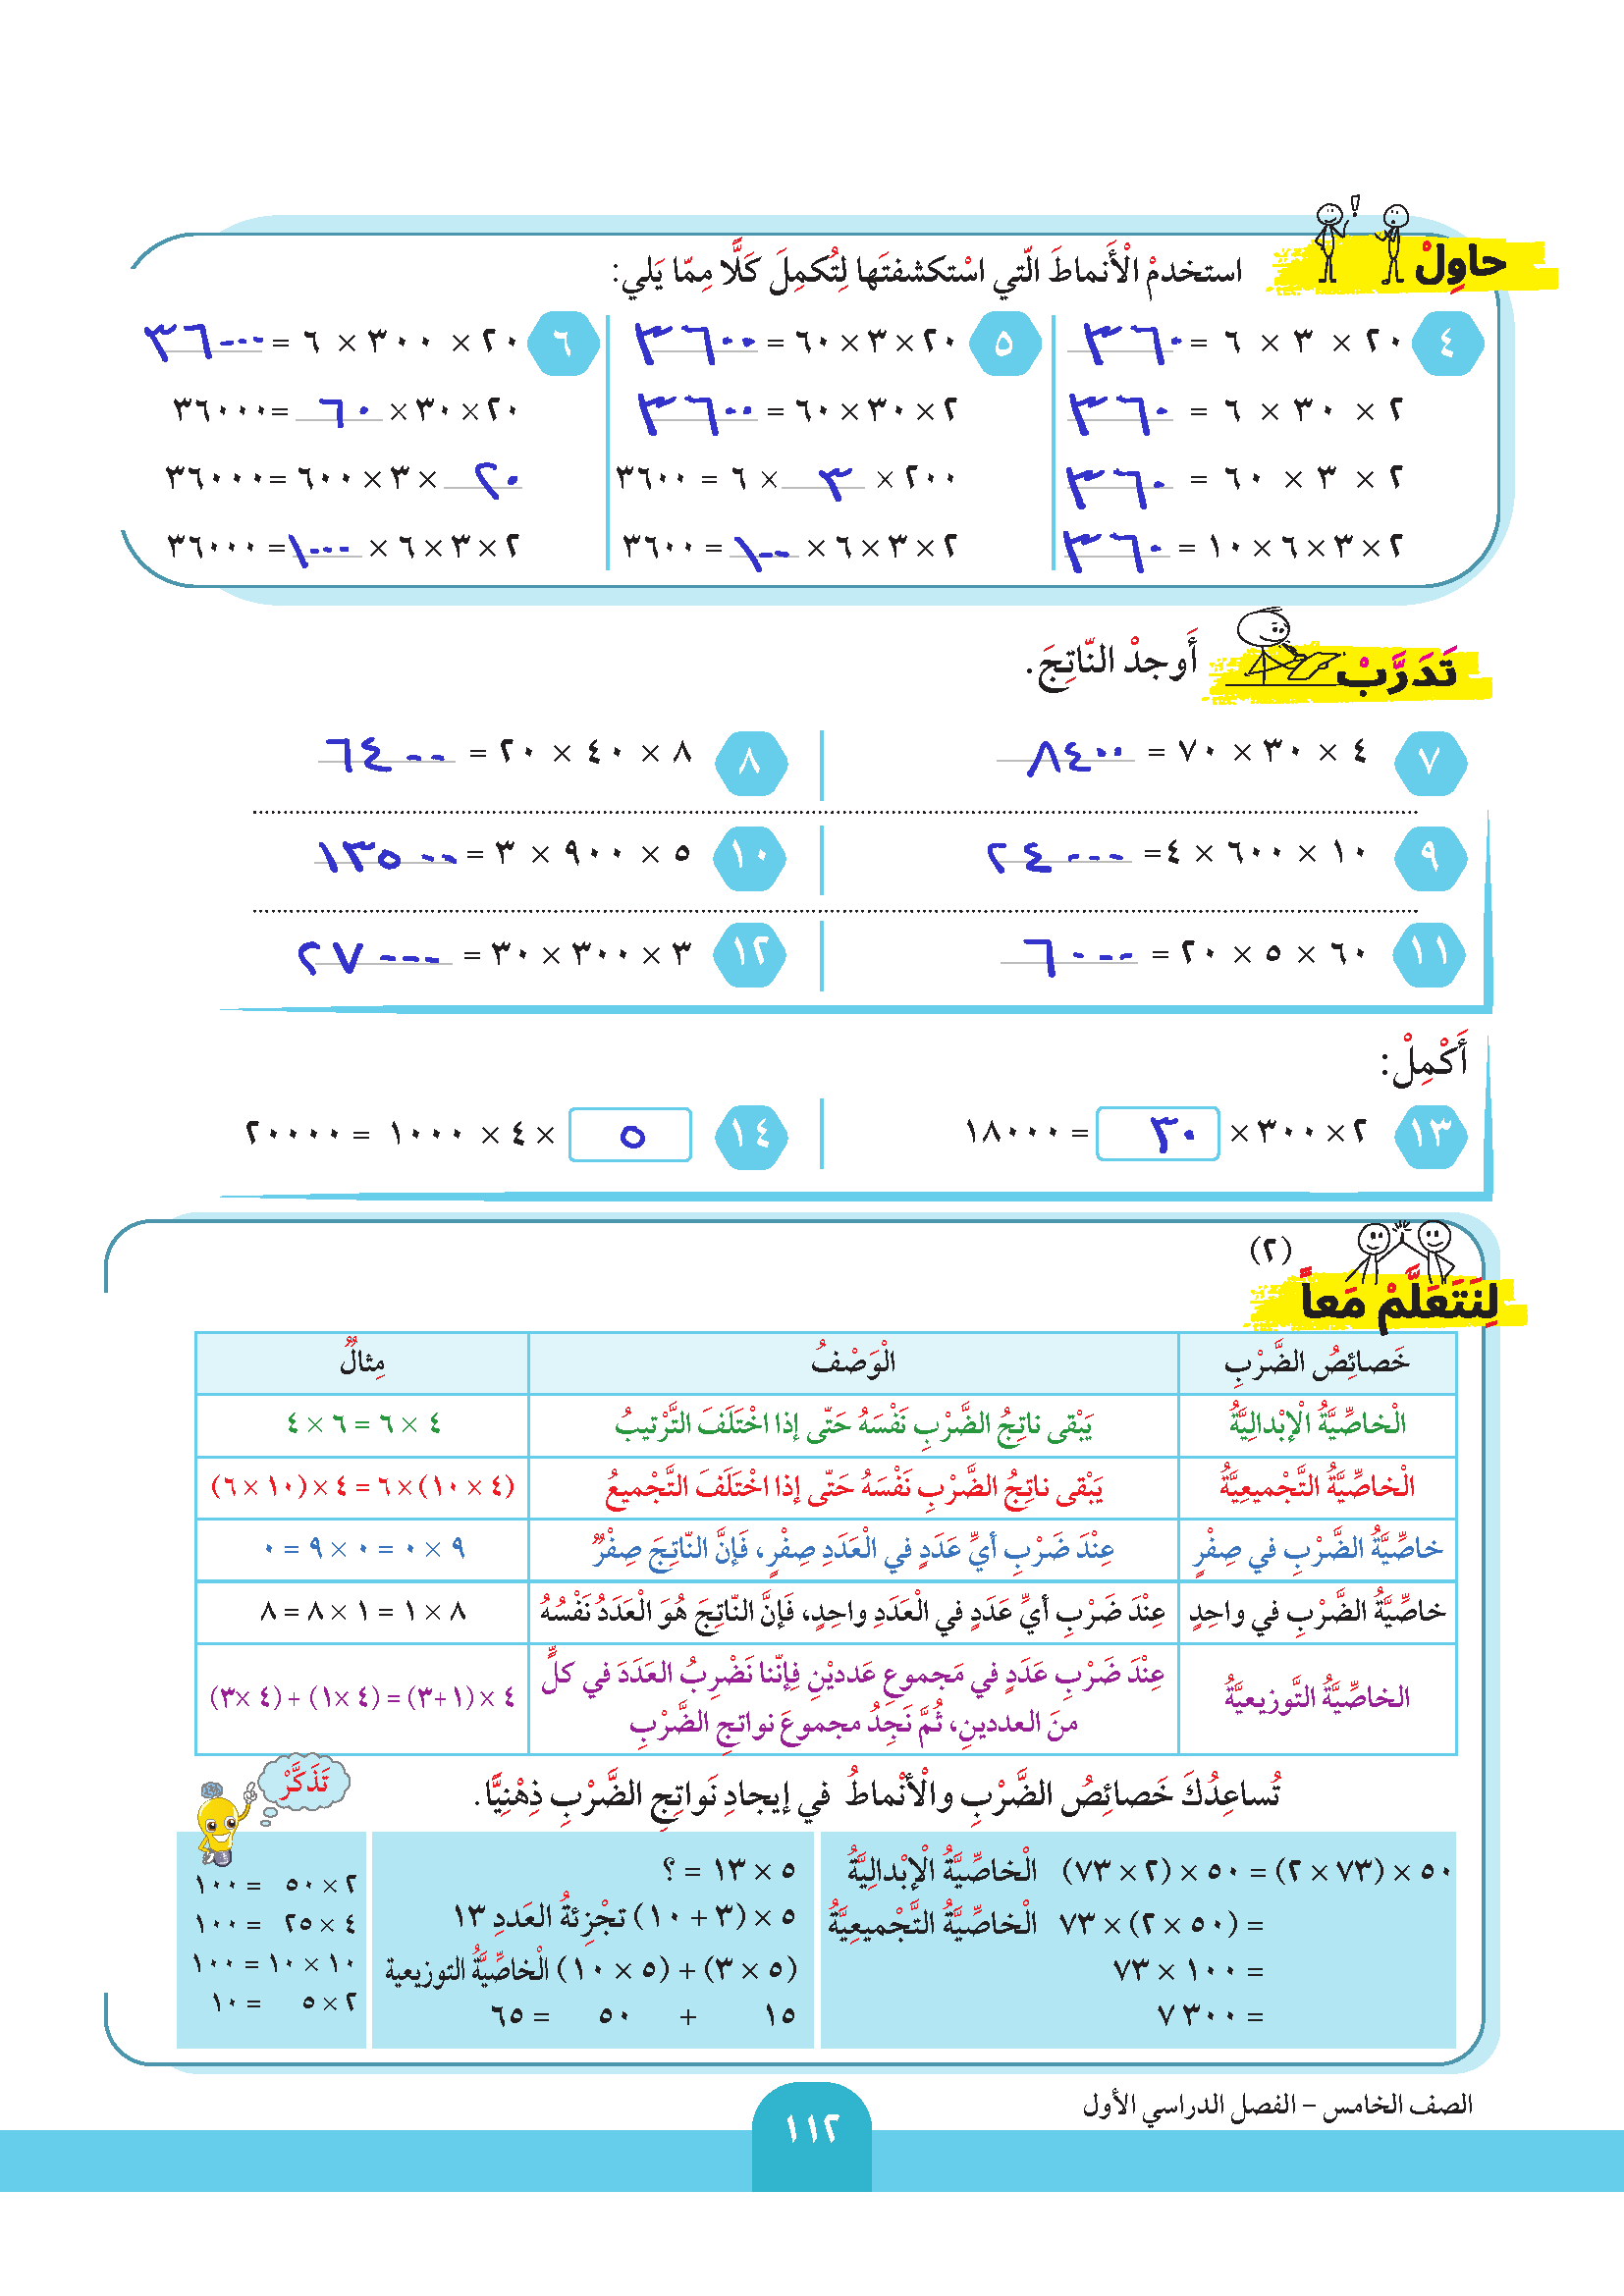 حاوِلْ استخدمْ الْأَنماطَ الّتي اسْتكشفتَها لِتُكمِلَ كَلًّا مِمّا يَلي:
٤ ٢٠ × ٣ × ٦ = ٣٦٠
٢ × ٣٠ × ٦ = ٣٦٠
٢ × ٣ × ٦٠ = ٣٦٠
٢ × ٣ × ٦ × ١٠ = ٣٦٠
٥ ٢٠ × ٣ × ٦٠ = ٣٦٠٠
٢ × ٣٠ × ٦٠ = ٣٦٠٠
٢٠٠ × ٣ × ٦ = ٣٦٠٠
٢ × ٣ × ٦ × ١٠٠ = ٣٦٠٠
٦ ٢٠ × ٣٠٠ × ٦ = ٣٦٠٠٠
٢٠ × ٣٠ × ٦٠ = ٣٦٠٠٠
٢٠ × ٣ × ٦٠٠ = ٣٦٠٠٠
٢ × ٣ × ٦ × ١٠٠٠ = ٣٦٠٠٠
تَدَرَّبْ أَوجدْ النّاتِجَ.
٧ ٤ × ٣٠ × ٧٠ = ٨٤٠٠
٨ ٨ × ٤٠ × ٢٠ = ٦٤٠٠
٩ ١٠ × ٦٠٠ × ٤ = ٢٤٠٠٠
١٠ ٥ × ٩٠٠ × ٣ = ١٣٥٠٠
١١ ٦٠ × ٥ × ٢٠ = ٦٠٠٠
١٢ ٣ × ٣٠٠ × ٣٠ = ٢٧٠٠٠
أَكْمِلْ:
١٣ ٢ × ٣٠٠ × ٣٠ = ١٨٠٠٠
١٤ ٥ × ٤ × ١٠٠٠ = ٢٠٠٠٠
لِنَتَعَلَّمْ مَعاً (٢)
خَصائِصُ الضَّرْبِ الْوَصْفُ مِثالٌ
الْخاصِّيَّةُ الْإِبْدالِيَّةُ يَبْقى ناتِجُ الضَّرْبِ نَفْسَهُ حَتّى إذا اخْتَلَفَ التَّرْتيبُ ٤ × ٦ = ٦ × ٤
الْخاصِّيَّةُ التَّجْميعِيَّةُ يَبْقى ناتِجُ الضَّرْبِ نَفْسَهُ حَتّى إذا اخْتَلَفَ التَّجْميعُ (٤ × ١٠) × ٦ = ٤ × (١٠ × ٦)
خاصِّيَّةُ الضَّرْبِ في صِفْرٍ عِنْدَ ضَرْبِ أيِّ عَدَدٍ في الْعَدَدِ صِفْرٍ، فَإنَّ النّاتِجَ صِفْرٌ ٩ × ٠ = ٠ × ٩ = ٠
خاصِّيَّةُ الضَّرْبِ في واحِدٍ عِنْدَ ضَرْبِ أيِّ عَدَدٍ في الْعَدَدِ واحِدٍ، فَإنَّ النّاتِجَ هُوَ الْعَدَدُ نَفْسُهُ ٨ × ١ = ١ × ٨ = ٨
الخاصِّيَّةُ التَّوزيعيَّةُ عِنْدَ ضَرْبِ عَدَدٍ في مَجموعِ عَدديْنِ فِإنّنا نَضْرِبُ العَدَدَ في كلٍّ منَ العددينِ، ثُمَّ نَجِدُ مجموعَ نواتجِ الضَّرْبِ ٤ × (١ + ٣) = (٤ × ١) + (٤ × ٣)
تُساعِدُكَ خَصائِصُ الضَّرْبِ والْأنْماطُ في إيجادِ نَواتِجِ الضَّرْبِ ذِهْنِيًّا.
٥٠ × (٧٣ × ٢) = ٥٠ × (٢ × ٧٣) الْخاصِّيَّةُ الْإِبْدالِيَّةُ
= (٥٠ × ٢) × ٧٣ الْخاصِّيَّةُ التَّجْميعِيَّةُ
= ١٠٠ × ٧٣
= ٧ ٣٠٠
٥ × ١٣ = ؟
٥ × (٣ + ١٠) تجْزِئةُ العَددِ ١٣
(٥ × ٣) + (٥ × ١٠) الْخاصِّيَّةُ التوزيعية
١٥ + ٥٠ = ٦٥
تَذَكَّرْ
٢ × ٥٠ = ١٠٠
٤ × ٢٥ = ١٠٠
١٠ × ١٠ = ١٠٠
٢ × ٥ = ١٠
الصف الخامس – الفصل الدراسي الأول
١١٢